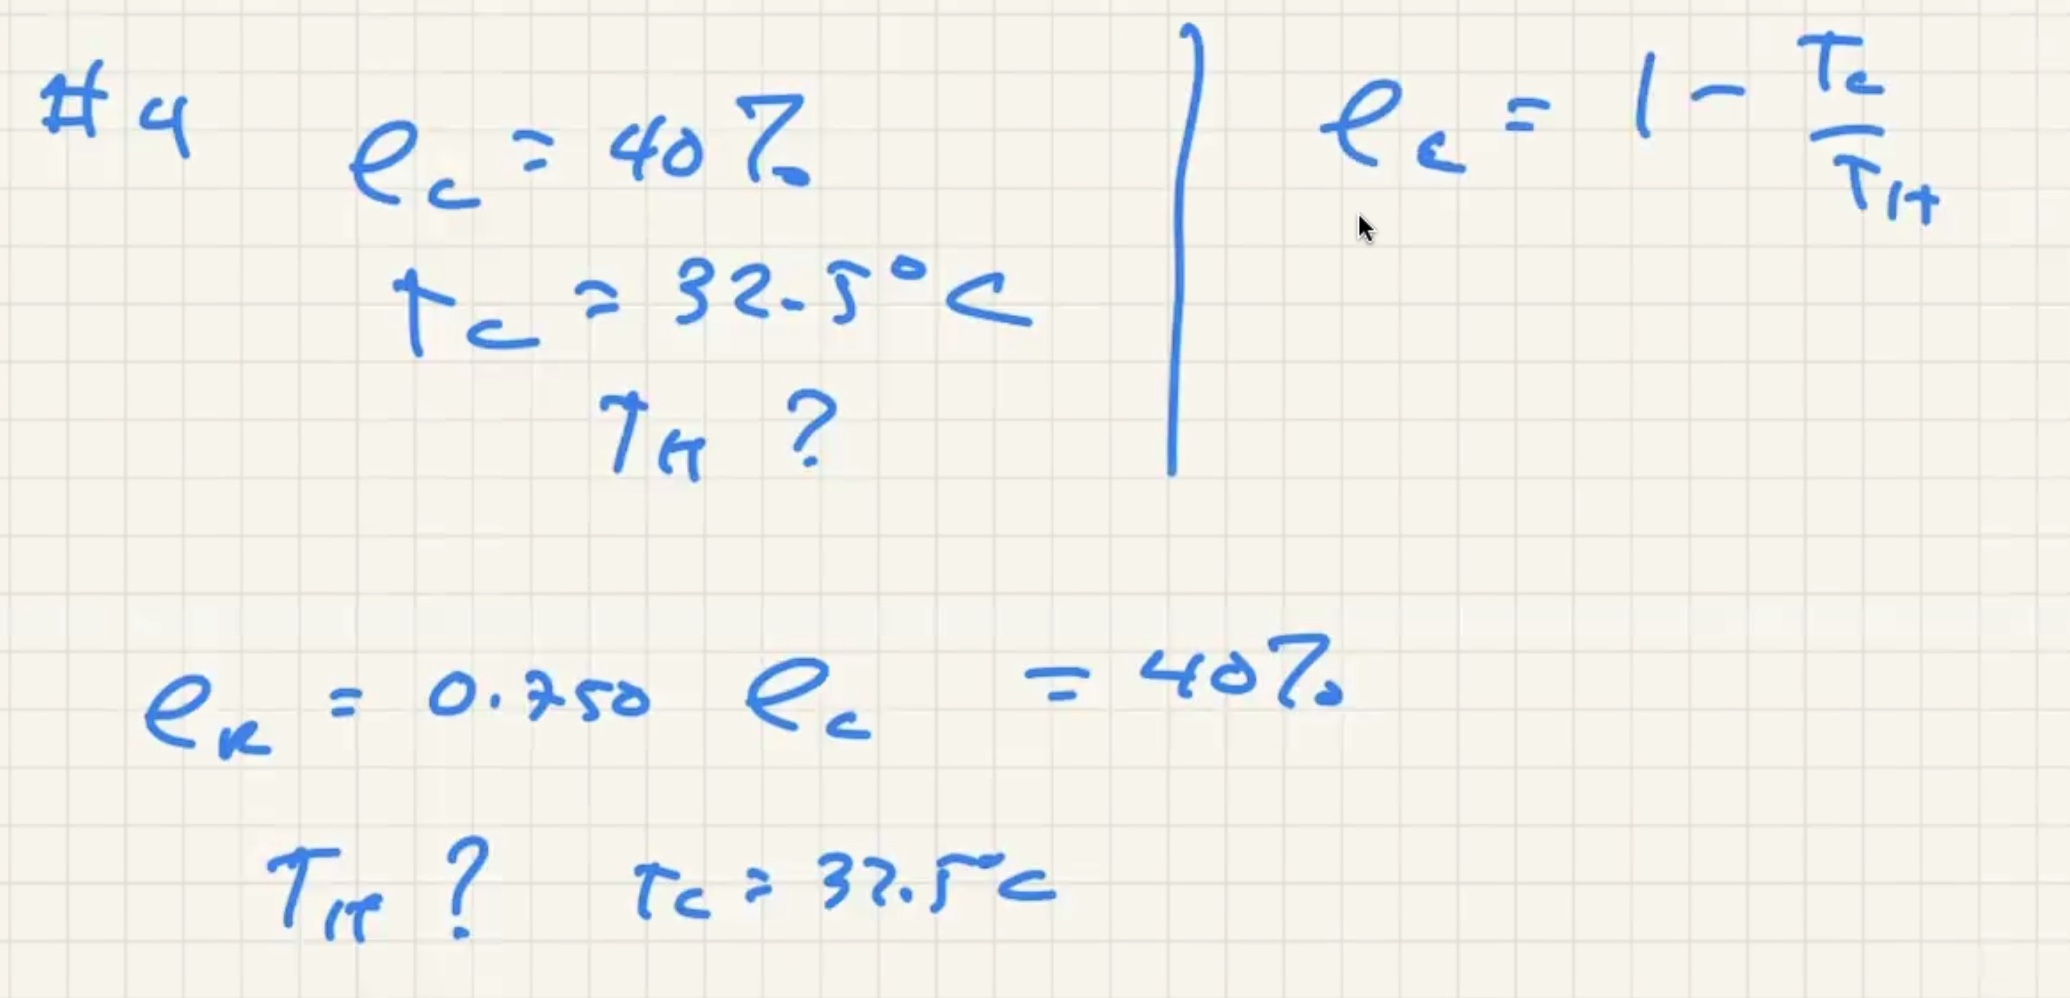 #4
e_c = 40%
T_c = 32.5°C
T_H ?
e_c = 1 - T_c/T_H
e_R = 0.750 e_c = 40%
T_H ? T_c = 32.5°C